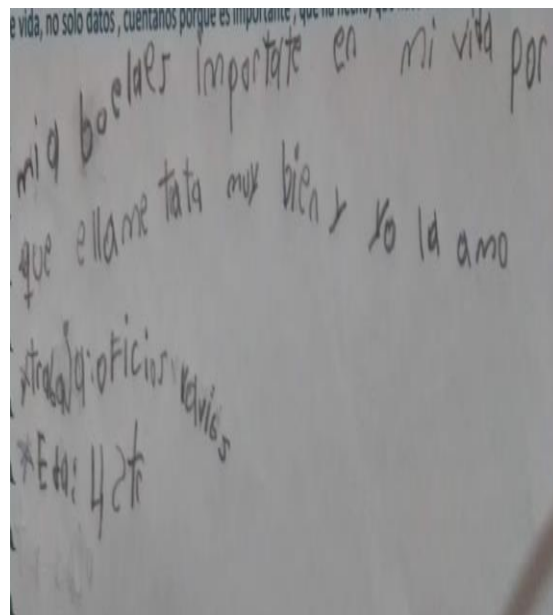 e vida, no solo datos, cuéntanos porque es importante, que ha hecho, que
mi a boelaes importate en mi vida por
que ellame tata muy bien y yo la amo
*trabaja: oficios
*Eda: 42